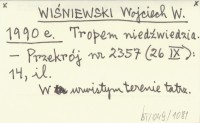 WIŚNIEWSKI Wojciech W.
1990 e. Tropem niedźwiedzia.
– Przekrój nr 2357 (26 IX):
14, il.
W urwistym terenie tatrz.